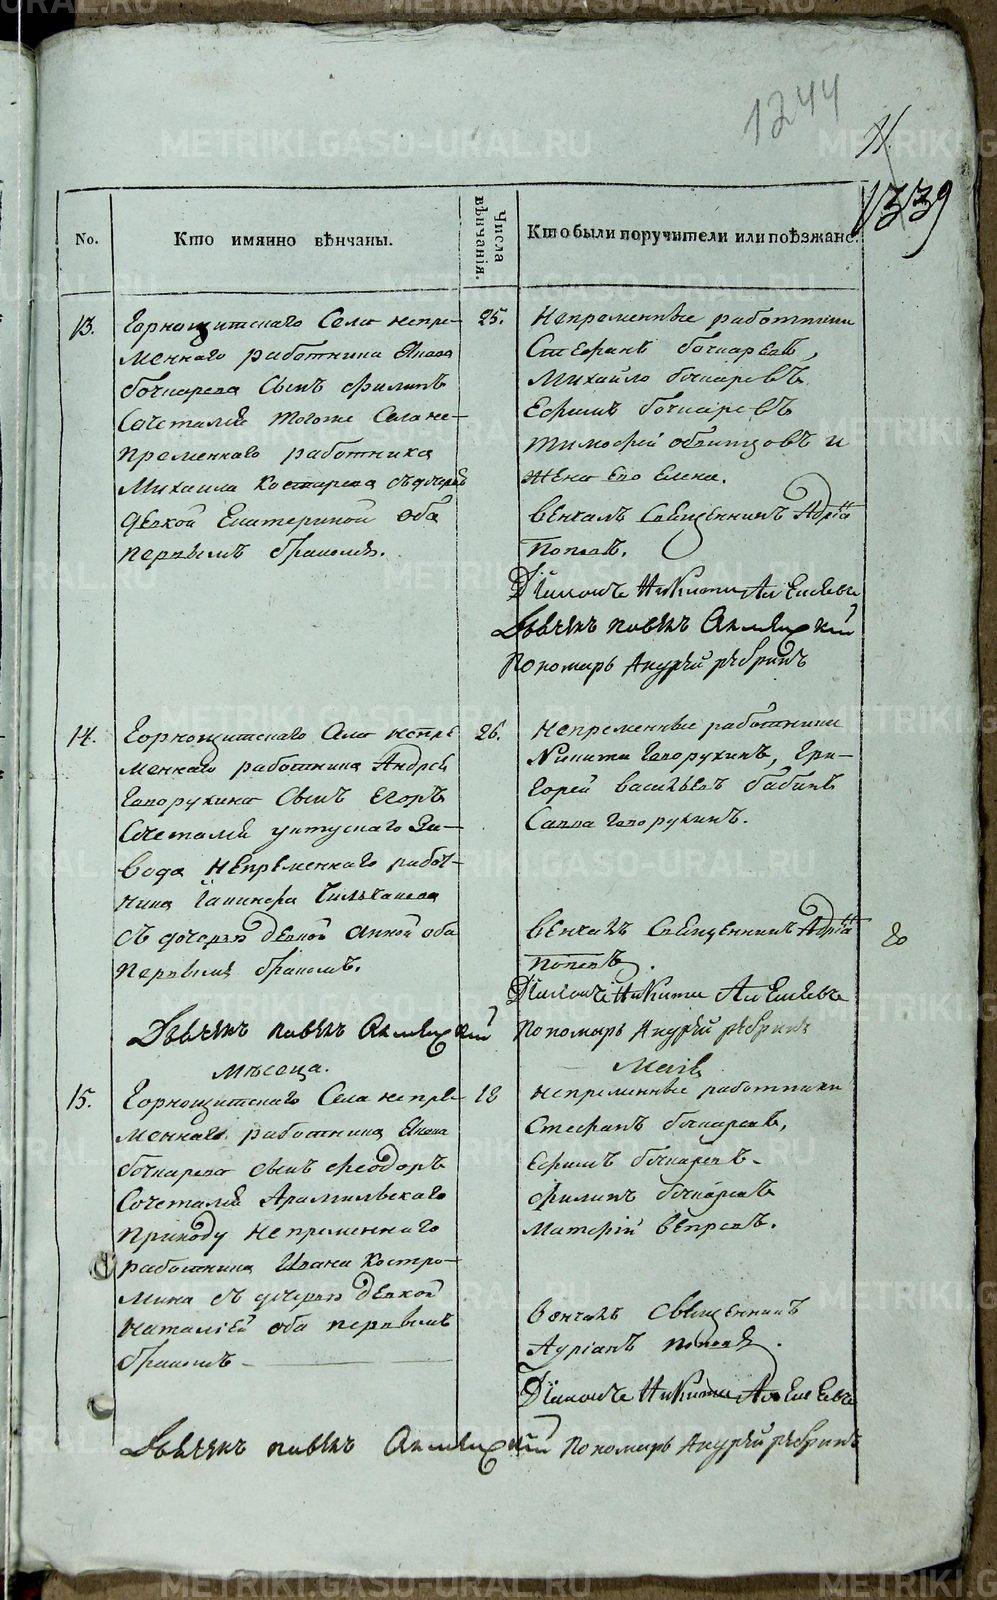 1244
11.
1339
No.
Кто имянно вѣнчаны.
Числа вѣнчанія.
Кто были поручители или поѣзжане.
13.
Горнощитскаго Села непре-
меннаго работника
бочкарева Сынъ Филипъ
Сочетался тогоже Села не-
пременнаго работника
Михаила Костарева съ дочерью
девкой Екатериной оба
первымъ бракомъ.
25.
Непременные работники
Стефанъ бочкаревъ,
Михайло бочкаревъ
Ефимъ бочкаревъ
тимофей обвитцовъ и
жена его Елена.
Венчалъ Священникъ Адріа
Поповъ.
Діаконъ Никита Алексеевъ
Дьячекъ павелъ
Пономарь Андрей рѣбринъ
14.
Горнощитскаго Села непре
меннаго работника Андрея
Говорухина Сынъ Егоръ
Сочетался уктускаго За-
вода непременнаго работ-
ника
съ дочерью девкой Анной оба
первымъ бракомъ.
26.
Непременные работники
Никита Говорухинъ, Гри-
горей васильевъ бабинъ
Савва Говорухинъ.
Венчалъ Священникъ Адріа
поповъ.
Діаконъ Никита Алексеевъ
Дьячекъ павелъ
Пономарь Андрей рѣбринъ
20
мѣсеца.
Маія
15.
Горнощитскаго Села непре
меннаго работника
бочкарева сынъ Феодоръ
Сочетался Арамильскаго
Приходу непременнаго
работника Ивана Костро-
мина съ дочерью девкой
Наталіей оба первымъ
бракомъ
18
непременные работники
Стефанъ бочкаревъ,
Ефимъ бочкаревъ
Филипъ бочкаревъ
Матфій вепревъ.
Венчалъ Священникъ
Адріанъ поповъ.
Діаконъ Никита Алексеевъ
Дьячекъ павелъ
Пономарь Андрей рѣбринъ
METRIKI.GASO-URAL.RU